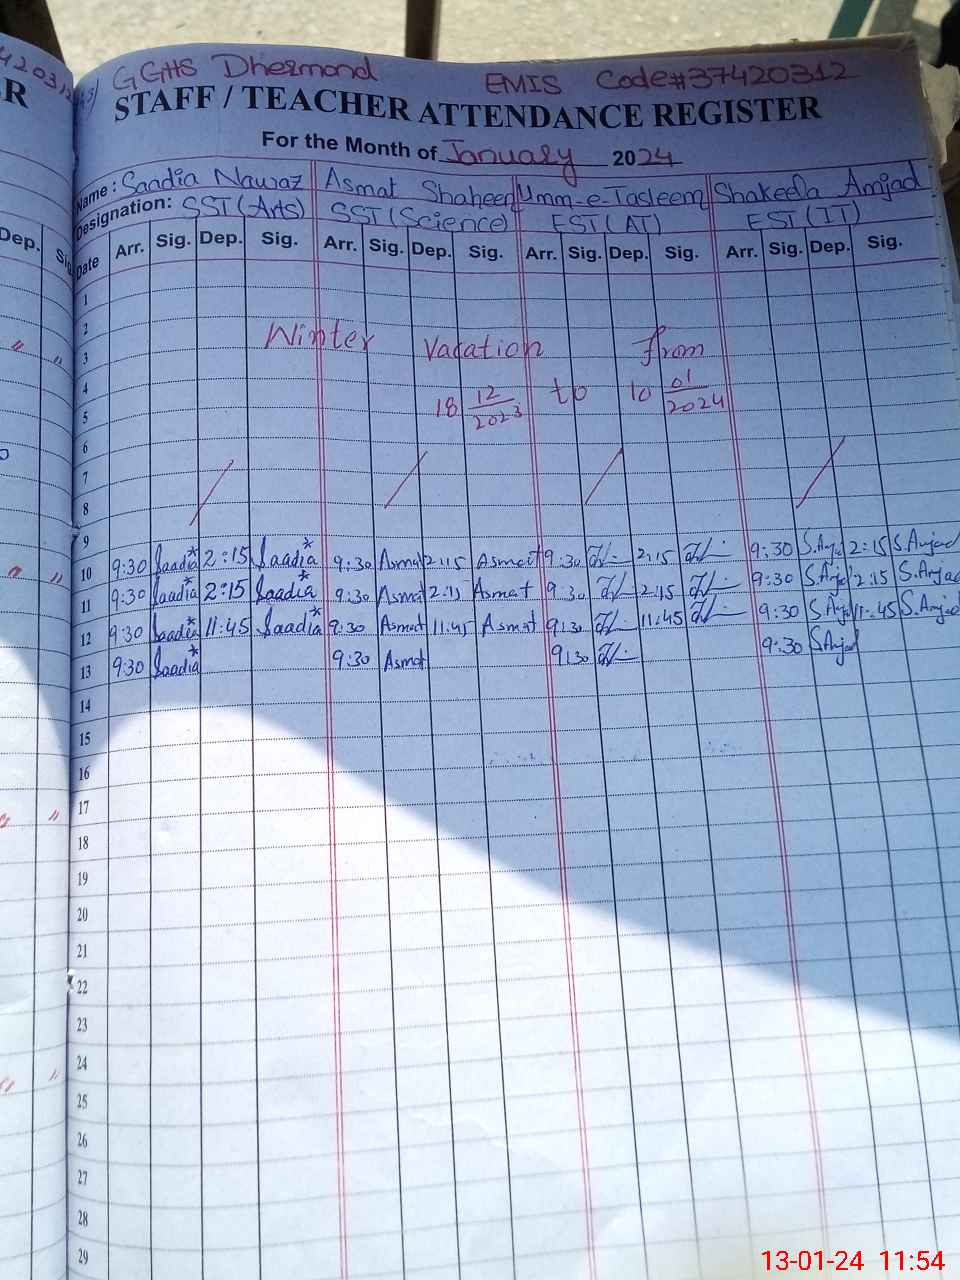 420312
GGHS Dhermond EMIS Code#37420312
STAFF / TEACHER ATTENDANCE REGISTER
For the Month of January 2024
Name: Saadia Nawaz Asmat Shaheen Umm-e-Tasleem Shakeela Amjad
Designation: SST(Arts) SST(Science) EST(AT) EST(IT)
Dep. Sig. Date Arr. Sig. Dep. Sig. Arr. Sig. Dep. Sig. Arr. Sig. Dep. Sig. Arr. Sig. Dep. Sig.
1
2
Winter Vacation from
3
4
18 12/2023 to 10 01/2024
5
6
7
8
9
10 9:30 Saadia* 2:15 Saadia* 9:30 Asmat 2:15 Asmat 9:30 2:15 9:30 S.Amjad 2:15 S.Amjad
11 9:30 Saadia* 2:15 Saadia* 9:30 Asmat 2:15 Asmat 9:30 2:15 9:30 S.Amjad 2:15 S.Amjad
12 9:30 Saadia* 11:45 Saadia* 9:30 Asmat 11:45 Asmat 9:30 11:45 9:30 S.Amjad 11:45 S.Amjad
13 9:30 Saadia* 9:30 Asmat 9:30 9:30 S.Amjad
14
15
16
17
18
19
20
21
22
23
24
25
26
27
28
29
13-01-24 11:54